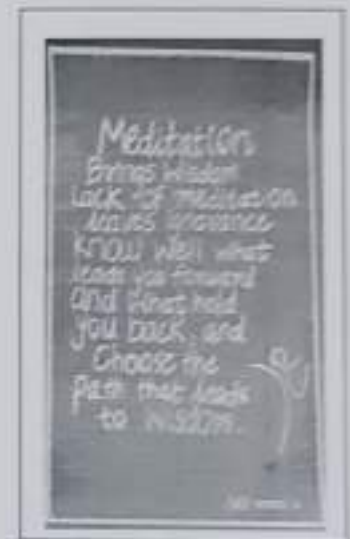 Meditation
Brings wisdom
Lack of meditation
leaves ignorance
Know well what
leads you forward
and what hold
you back, and
Choose the
path that leads
to wisdom.